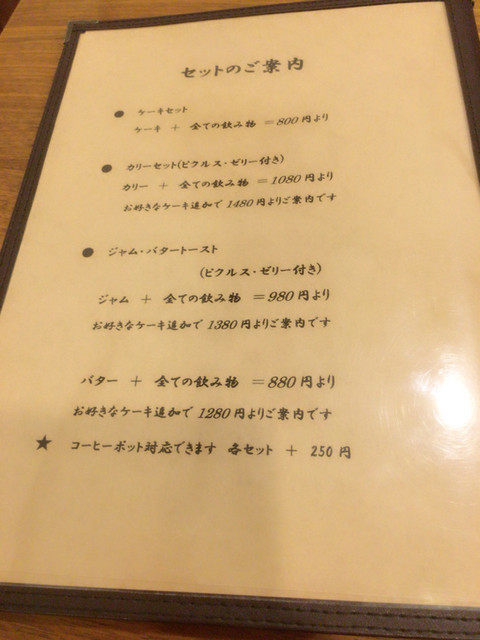 セットのご案内
● ケーキセット
ケーキ + 全ての飲み物 =800円より
● カリーセット(ピクルス・ゼリー付き)
カリー + 全ての飲み物 =1080円より
お好きなケーキ追加で1480円よりご案内です
● ジャム・バタートースト
(ピクルス・ゼリー付き)
ジャム + 全ての飲み物 =980円より
お好きなケーキ追加で1380円よりご案内です
バター + 全ての飲み物 =880円より
お好きなケーキ追加で1280円よりご案内です
★ コーヒーポット対応できます 各セット + 250円